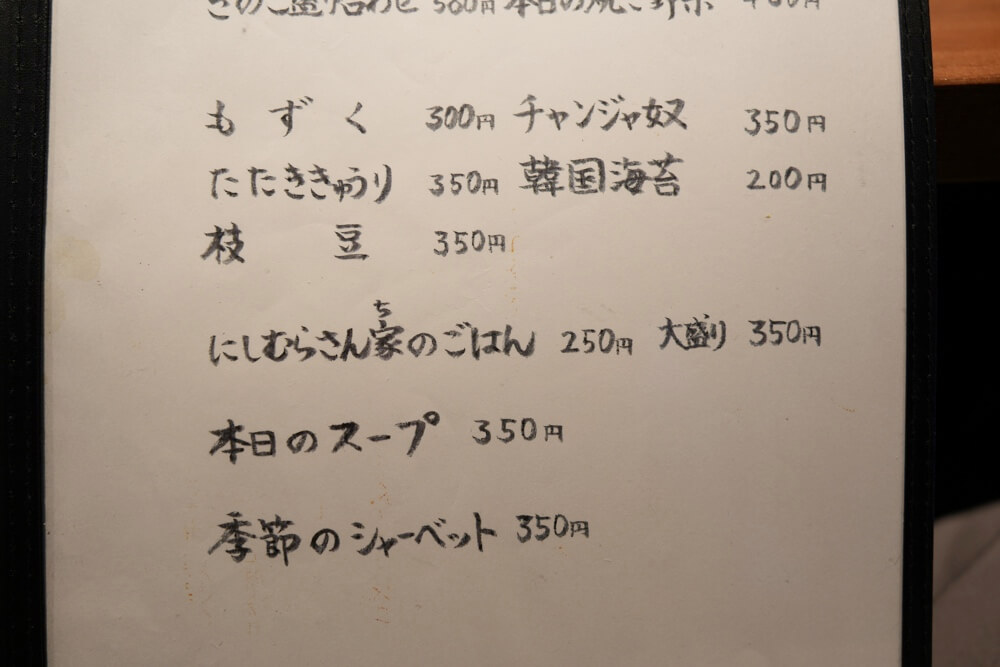 もずく 300円 チャンジャ奴 350円
たたききゅうり 350円 韓国海苔 200円
枝豆 350円
ち
にしむらさん家のごはん 250円 大盛り 350円
本日のスープ 350円
季節のシャーベット 350円